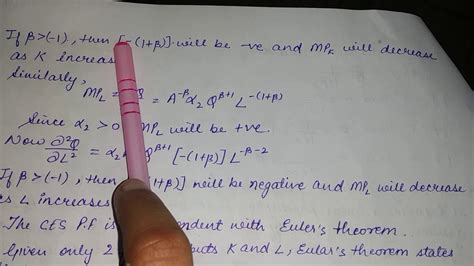 If β>(-1), then [-(1+β)] will be -ve and MPₖ will decrease
as K increas
Similarly,
MP_L = Q = A^-β α₂ Q^β+1 L^-(1+β)
Since α₂ > 0 MP_L will be +ve.
Now ∂²Q/∂L² = α₂ Q^β+1 [-(1+β)] L^-β-2
If β>(-1), then (1+β)] will be negative and MP_L will decrease
as L increases
The CES P.F is pendent with Euler's theorem.
Given only 2 puts K and L, Eular's theorem states